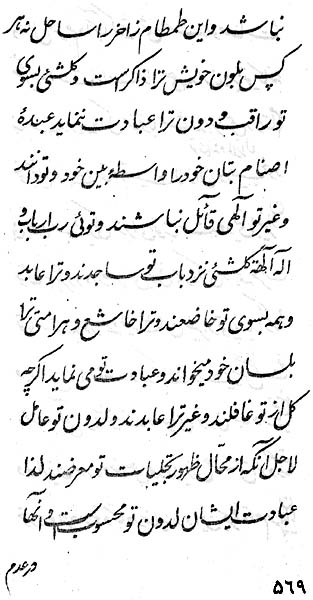 نباشد و این طمطام زاخر را ساحل نه هر
کس بلون خویش ترا ذاکر است و کلشئی بسوی
تو راقب و دون ترا عبادت ننماید عبدهٔ
اصنام بتان خود را واسطهٔ بین خود و تو دانند
و غیر تو آلهی قائل نباشند و توئی رب ارباب و
اله آلهة کلشئی نزد باب تو ساجدند و ترا عابد
و همه بسوی تو خاضعند و ترا خاشع و هر امتی ترا
بلسان خود میخواند و عبادت تو می نماید اگر چه
کل از تو غافلند و غیر ترا عابدند و لدون تو عامل
لاجل آنکه از محال ظهور تجلیات تو معرضند لذا
عبادت ایشان لدون تو محسوب است و آنها
در عدم
۵۶۹